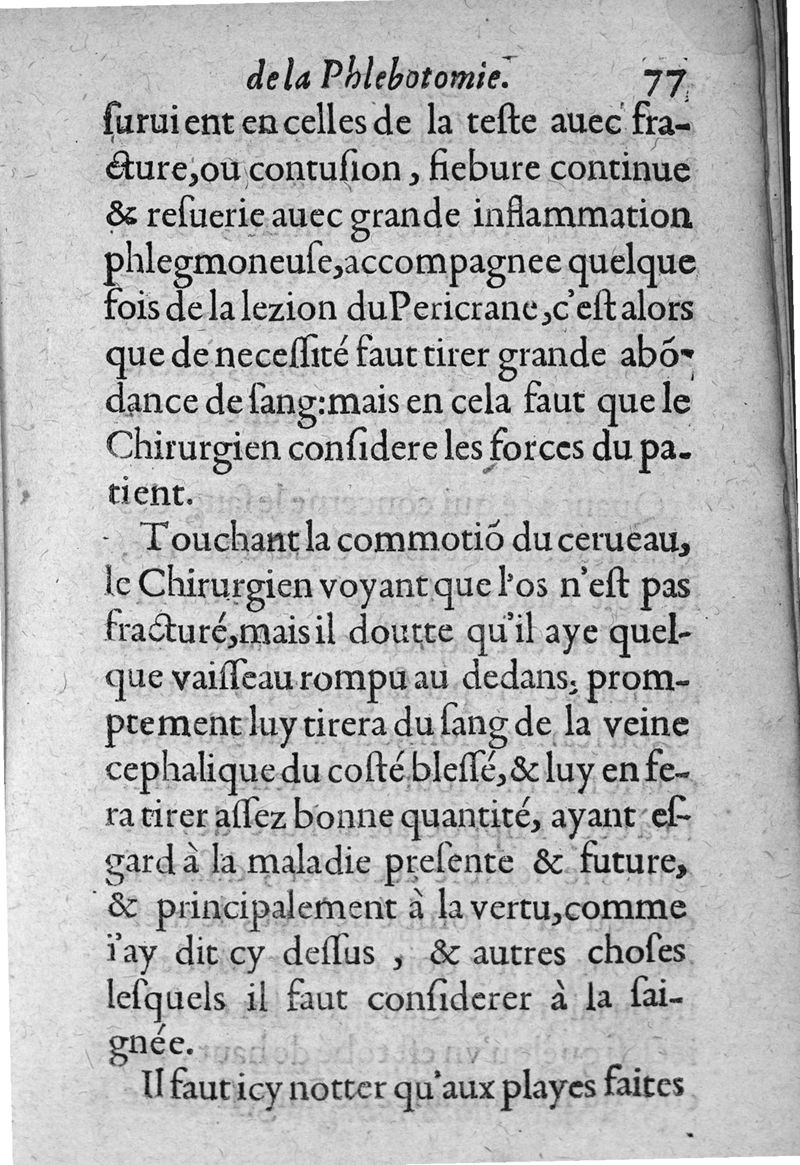 de la Phlebotomie. 77
ſuruient en celles de la teſte auec fra-
cture, ou contuſion, fiebure continue
& reſuerie auec grande inflammation
phlegmoneuſe, accompagnee quelque
fois de la lezion du Pericrane, c'eſt alors
que de neceſſité faut tirer grande abõ-
dance de ſang: mais en cela faut que le
Chirurgien conſidere les forces du pa-
tient.
Touchant la commotiõ du cerueau,
le Chirurgien voyant que l'os n'eſt pas
fracturé, mais il doutte qu'il aye quel-
que vaiſſeau rompu au dedans; prom-
ptement luy tirera du ſang de la veine
cephalique du coſté bleſſé, & luy en fe-
ra tirer aſſez bonne quantité, ayant eſ-
gard à la maladie preſente & future,
& principalement à la vertu, comme
i'ay dit cy deſſus, & autres choſes
leſquels il faut conſiderer à la ſai-
gnée.
Il faut icy notter qu'aux playes faites